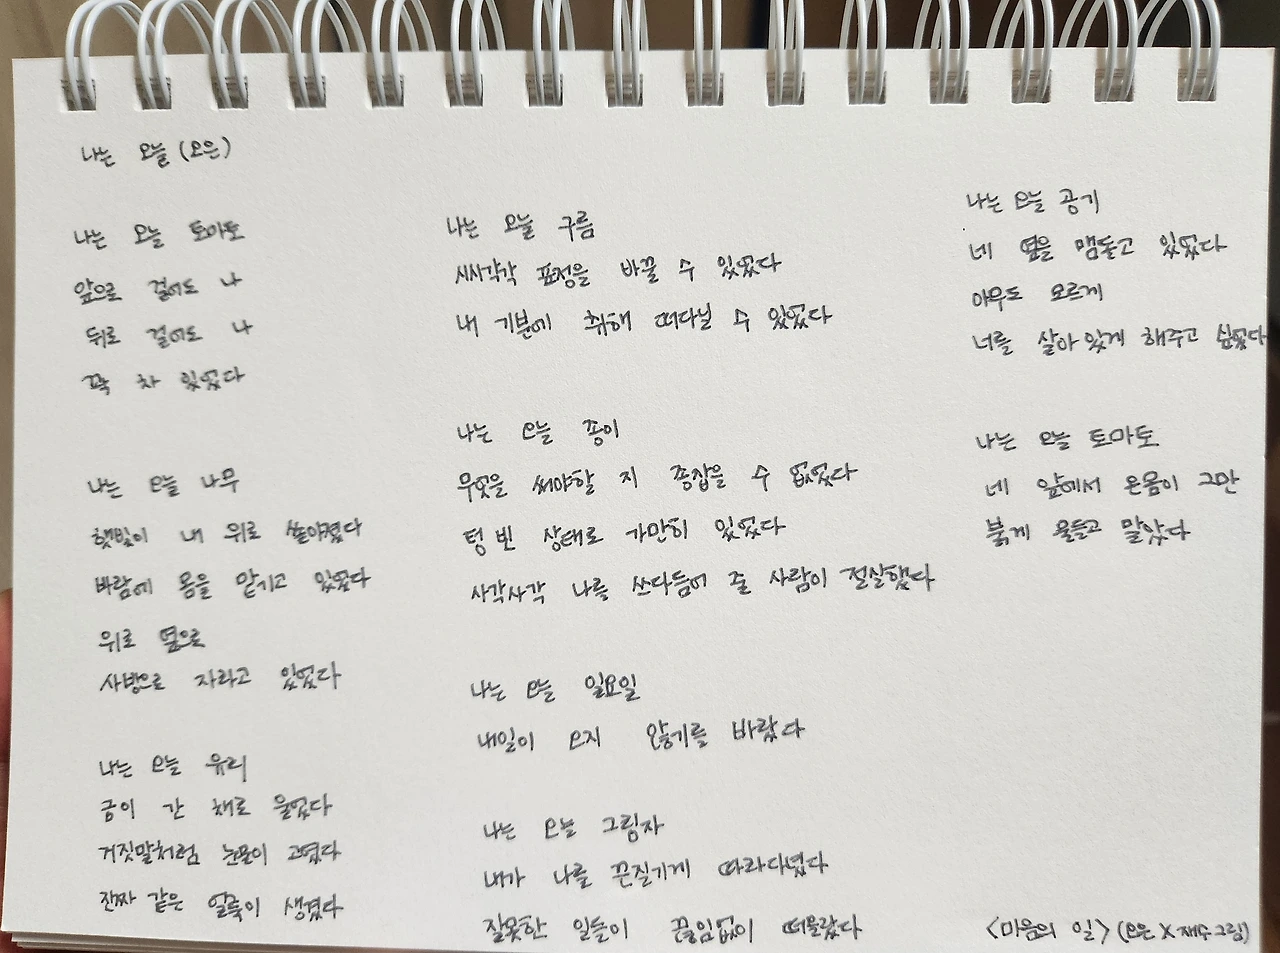 나는 오늘 (오은)
나는 오늘 토마토
앞으로 걸어도 나
뒤로 걸어도 나
꽉 차 있었다
나는 오늘 나무
햇빛이 내 위로 쏟아졌다
바람에 몸을 맡기고 있었다
위로 옆으로
사방으로 자라고 있었다
나는 오늘 유리
금이 간 채로 울었다
거짓말처럼 눈물이 고였다
진짜 같은 얼룩이 생겼다
나는 오늘 구름
시시각각 표정을 바꿀 수 있었다
내 기분에 취해 떠다닐 수 있었다
나는 오늘 종이
무엇을 써야할 지 종잡을 수 없었다
텅 빈 상태로 가만히 있었다
사각사각 나를 쓰다듬어 줄 사람이 절실했다
나는 오늘 일요일
내일이 오지 않기를 바랐다
나는 오늘 그림자
내가 나를 끈질기게 따라다녔다
잘못한 일들이 끊임없이 떠올랐다
나는 오늘 공기
네 옆을 맴돌고 있었다
아무도 모르게
너를 살아 있게 해주고 싶었다
나는 오늘 토마토
네 앞에서 온몸이 그만
붉게 물들고 말았다
<마음의 일> (오은 X 재수 그림)